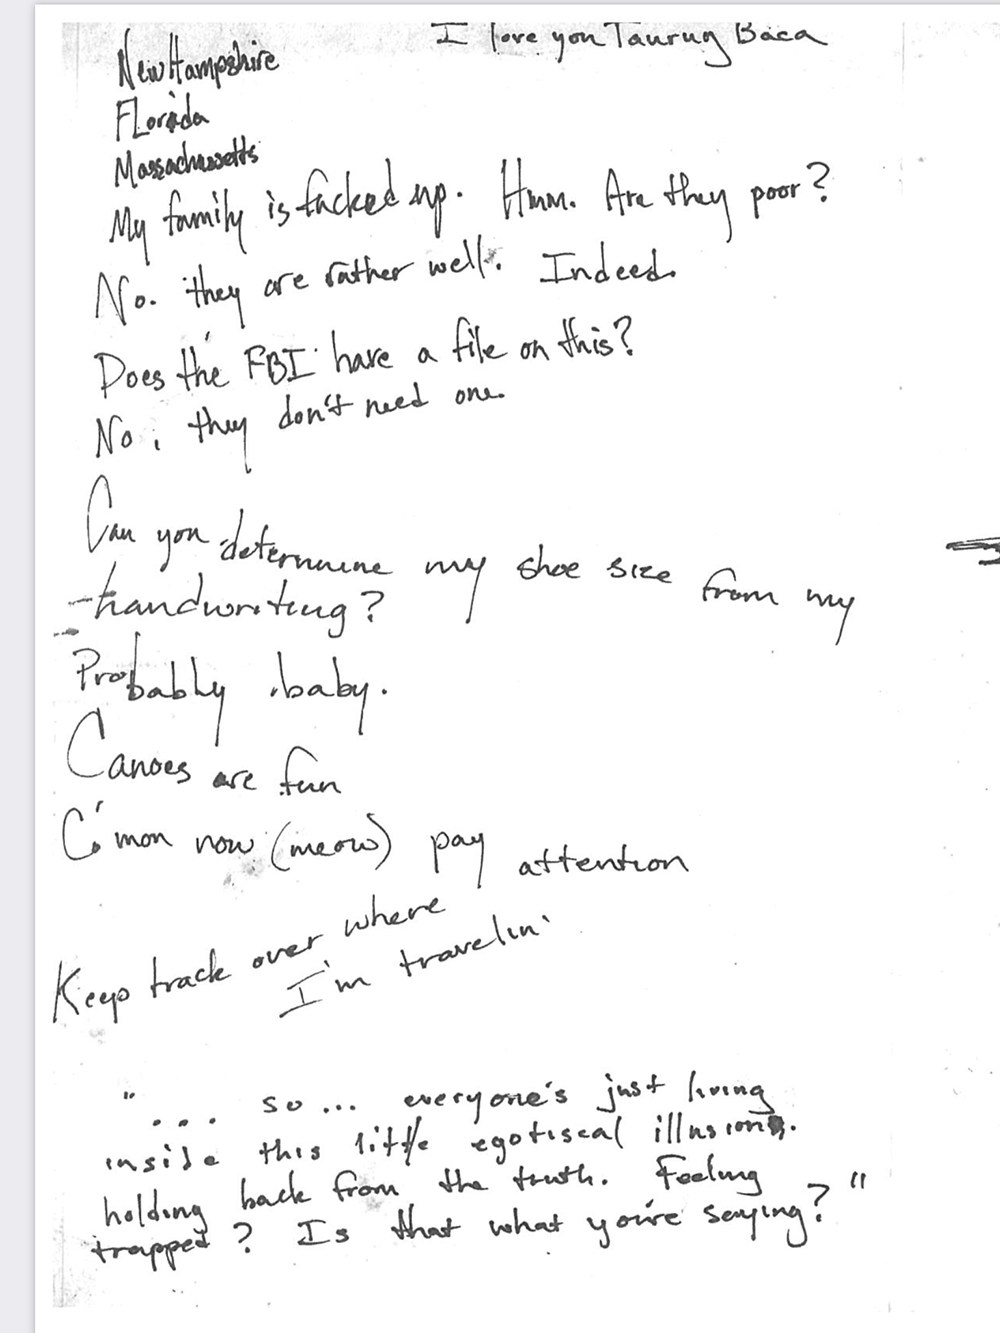 I love you Taurug Baca
New Hampshire
FLorida
Massachusetts
My family is fucked up. Hmm. Are they poor?
No. they are rather well. Indeed.
Does the FBI have a file on this?
No, they don't need one.
Can you determine my shoe size from my
handwriting?
Probably baby.
Canoes are fun
C'mon now (meow) pay attention
Keep track over where
I'm travelin'
"... so... everyone's just living
inside this little egotiscal illusion.
holding back from the truth. Feeling
trapped? Is that what you're saying?"